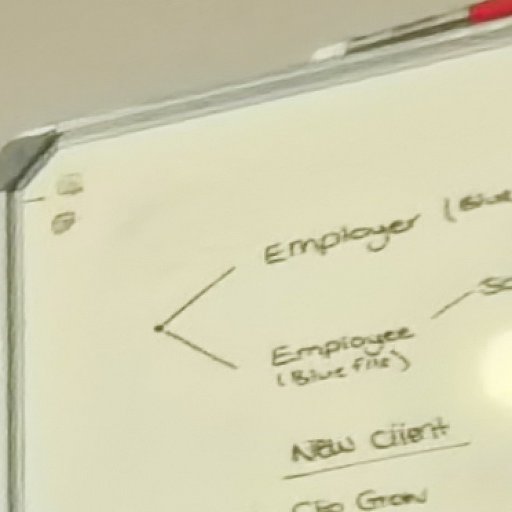 Employer (Blue
Employee
(Blue file)
New Client
Clio Grow